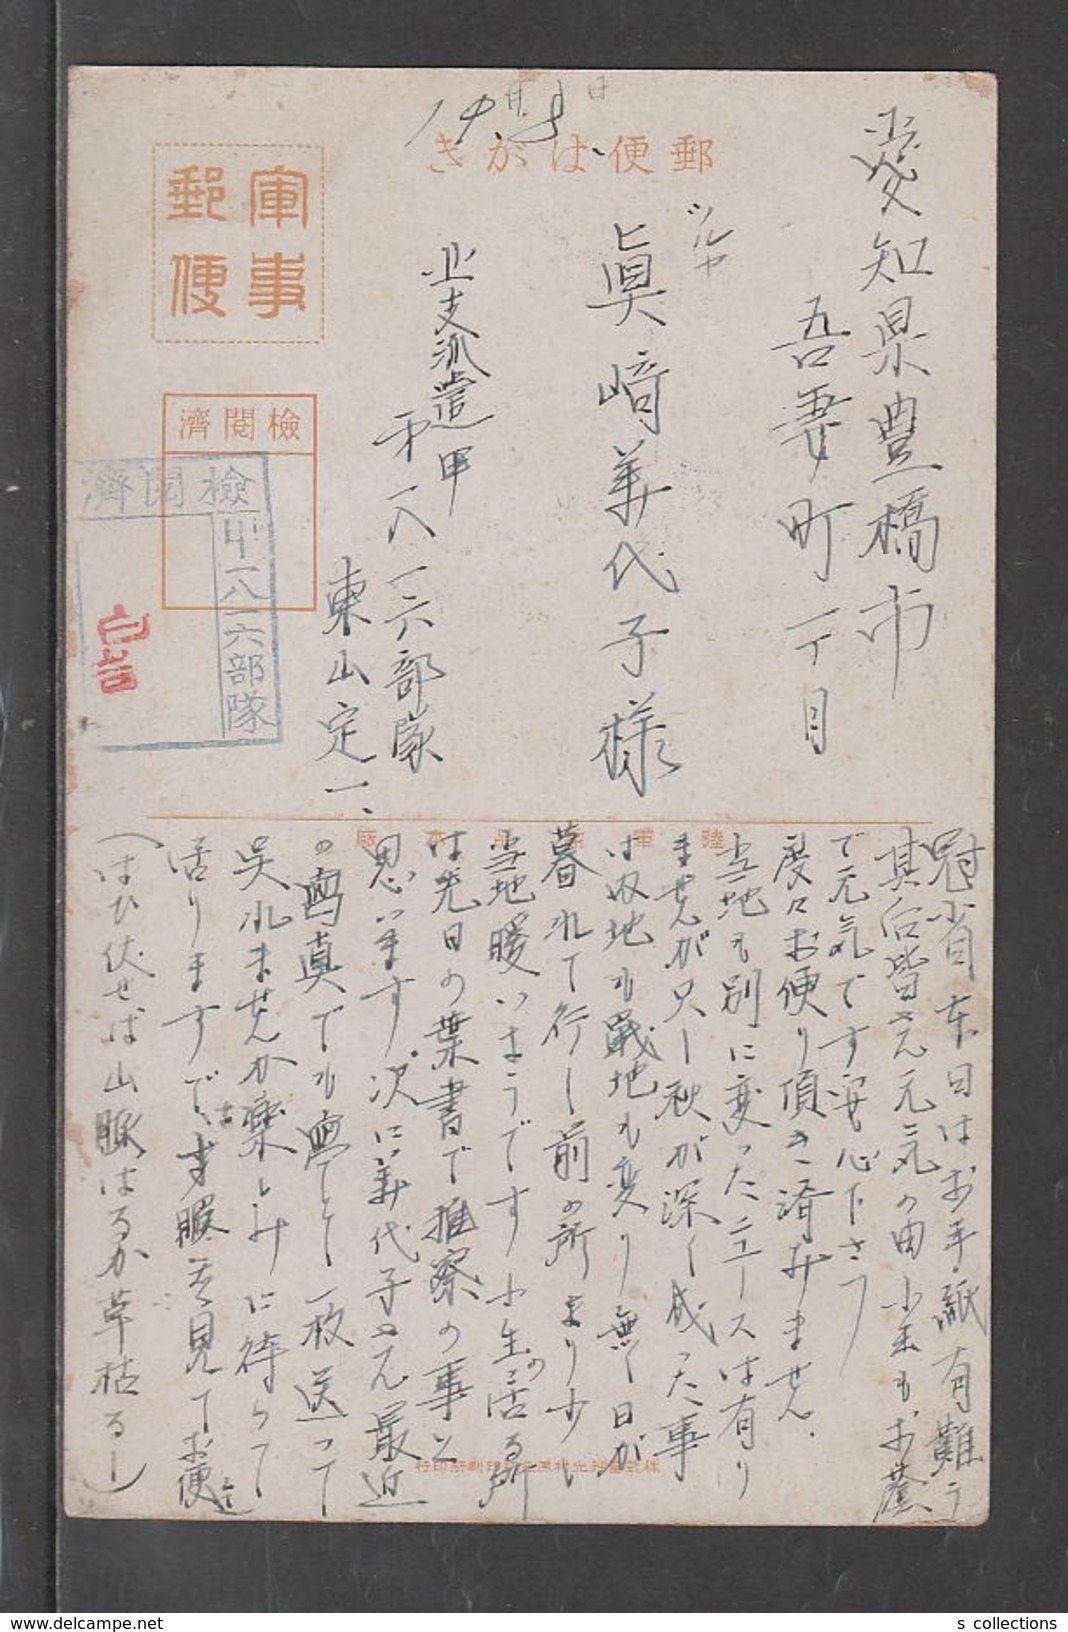 郵便はがき
軍事
郵便
検閲済
検閲済
甲一八一六部隊
愛知県豊橋市
吾妻町一丁目
ツルヤ
眞﨑美代子様
北支派遣甲
第一八一六部隊
東山定一
冠省本日はお手紙有難う
其后皆さん元気の由小生もお蔭
で元気です安心下さう
度々お便り頂き済みません
当地も別に変ったニュースは有り
ませんが只し秋が深く成った事
は内地も戦地も変り無く日が
暮れて行く前の所より少し
当地暖いようです小生の活る所
は先日の葉書で推察の事と
思います次に美代子さん最近
の写真でも写して一枚送って
呉れませんか楽しみに待って
活りますでは寸暇を見てお便
(はひ伏せば山脈はるか草枯るし)
s collections